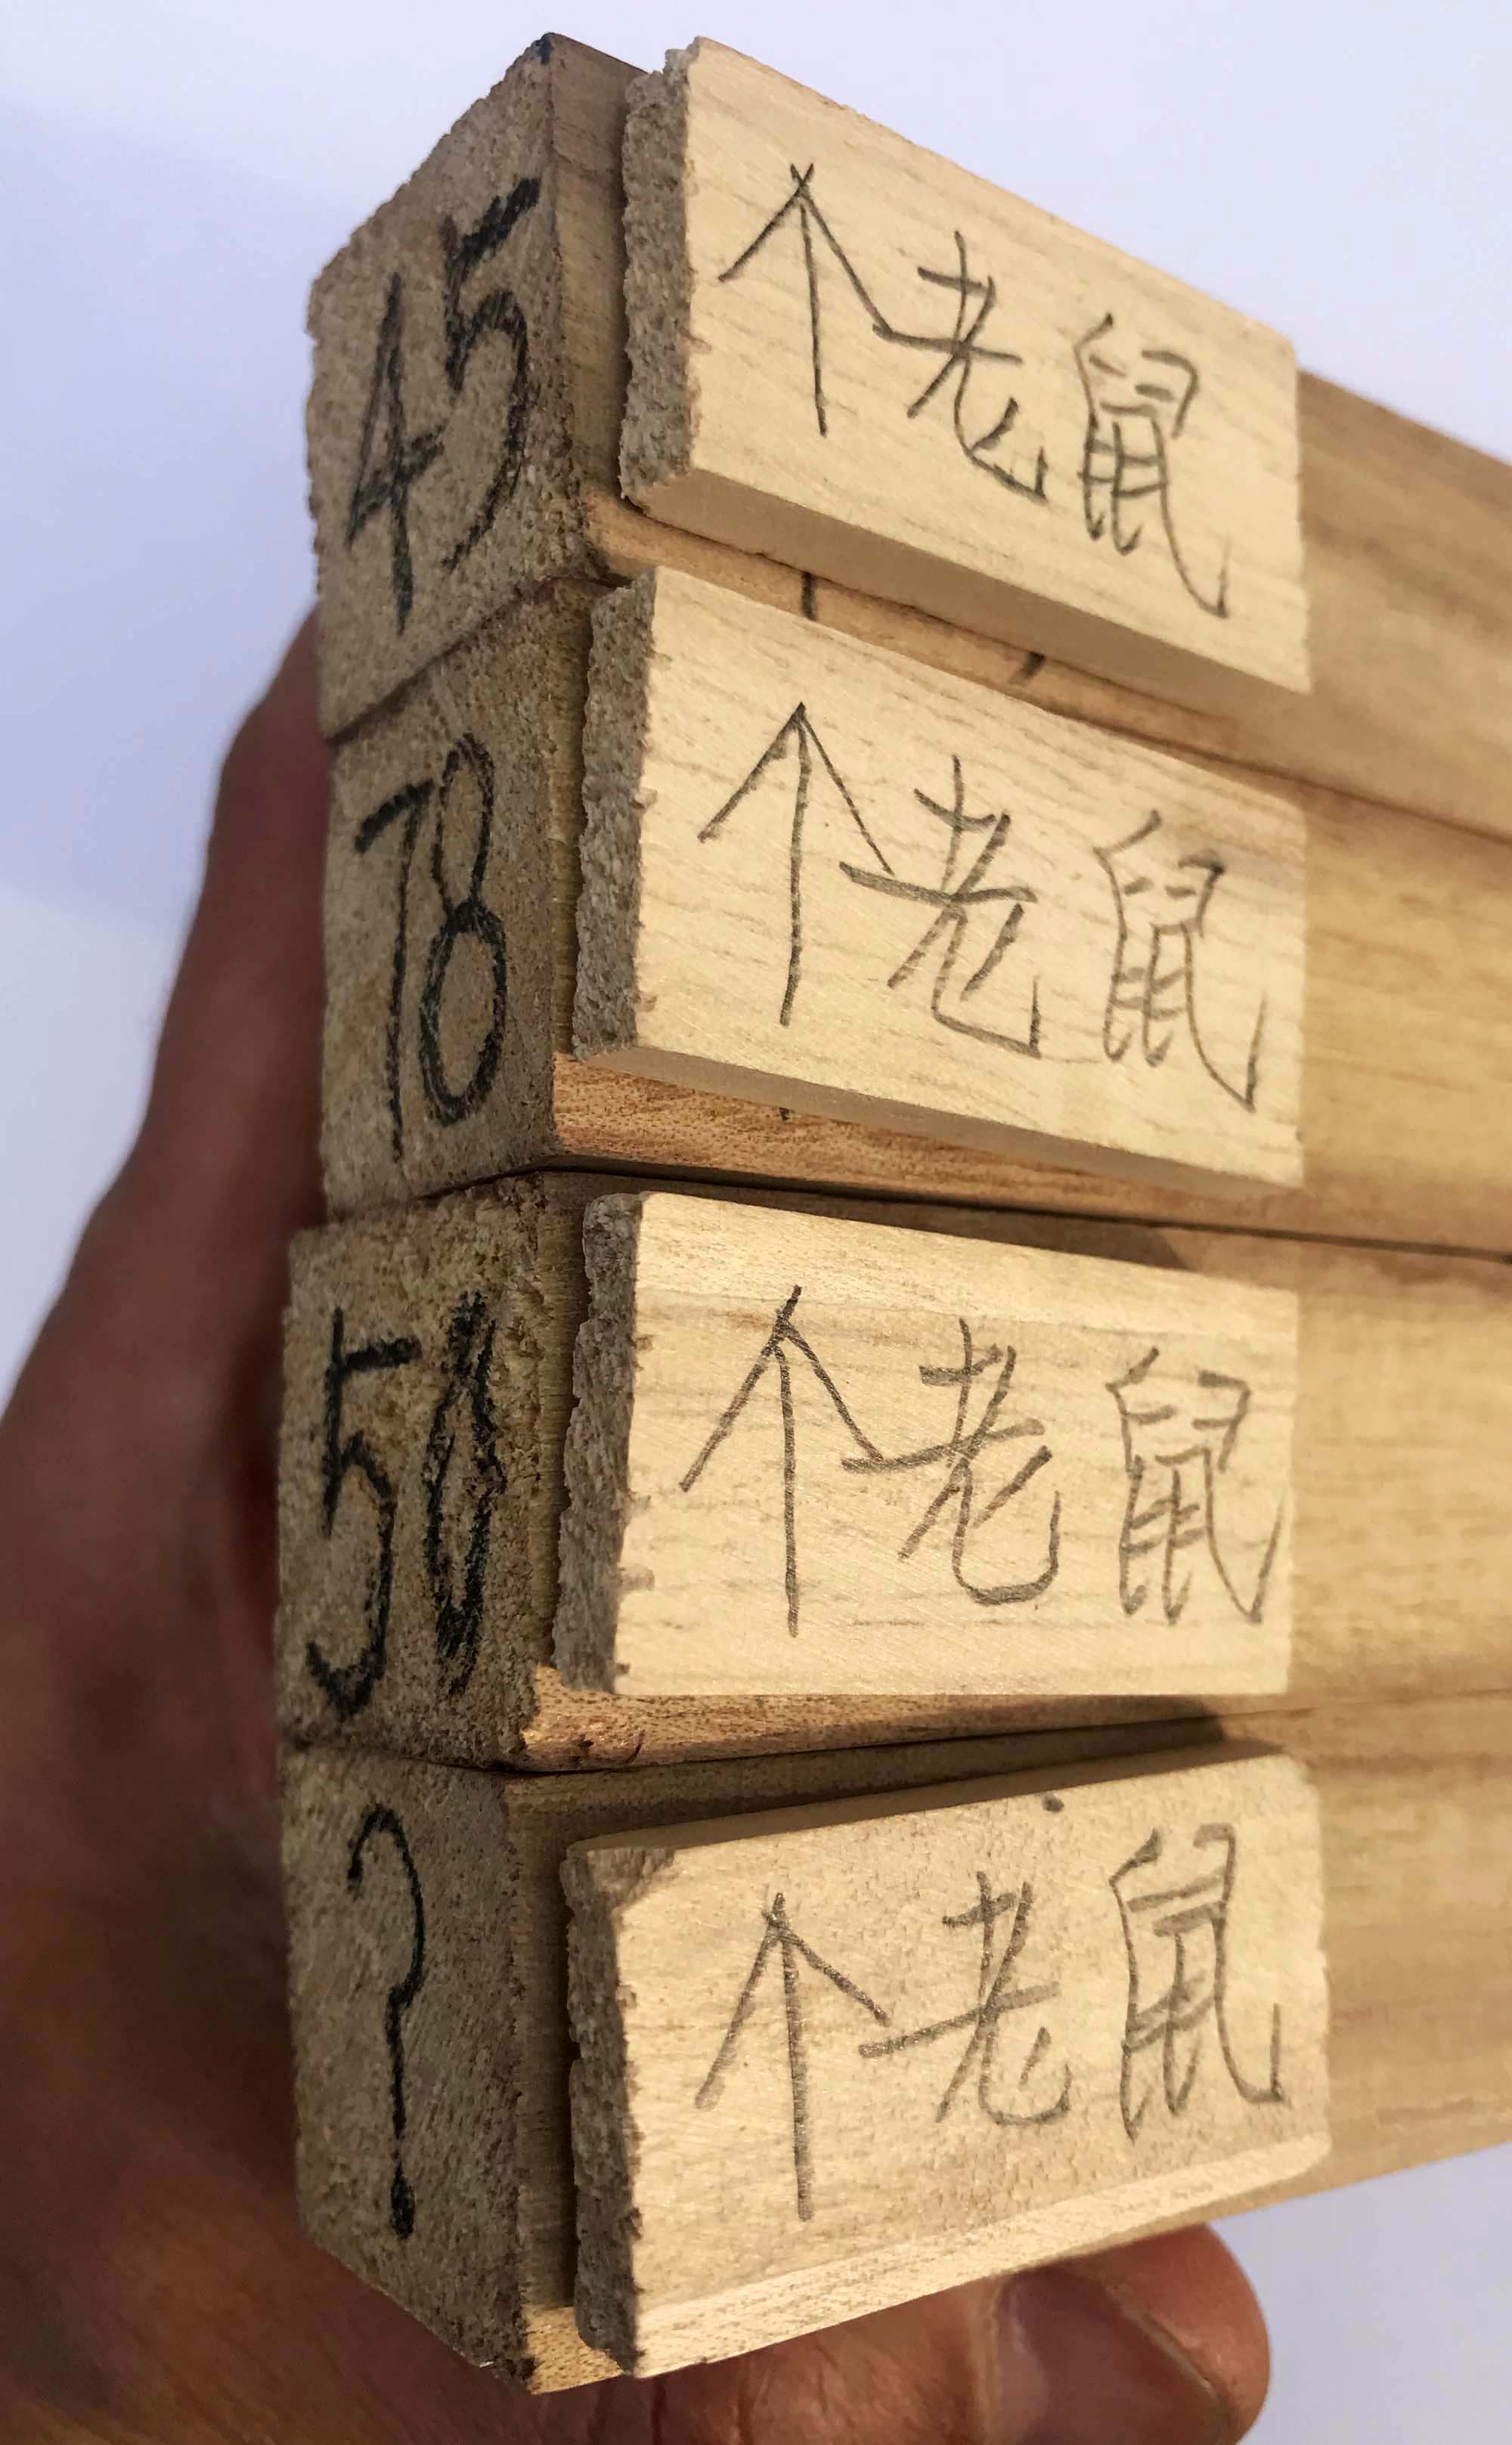 45个老鼠
78个老鼠
50个老鼠
?个老鼠